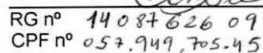 RG nº 14 087626 09
CPF nº 057.949,705.45